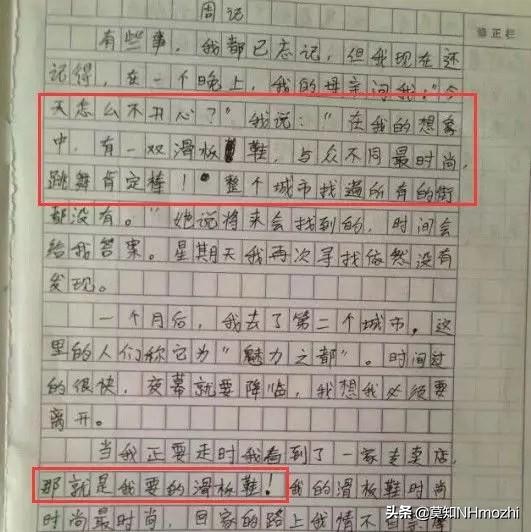 周记
修正栏
有些事，我都已忘记，但我现在还
记得，在一个晚上，我的母亲问我："今
天怎么不开心？"我说："在我的想象
中，有一双滑板鞋，与众不同最时尚，
跳舞肯定棒！" 整个城市找遍所有的街
都没有。"她说将来会找到的，时间会
给我答案。星期天我再次寻找依然没有
发现。
一个月后，我去了第二个城市。这
里的人们称它为"魅力之都"。时间过
的很快，夜幕就要降临，我想我必须要
离开。
当我正要走时我看到了一家专卖店，
那就是我要的滑板鞋！我的滑板鞋时尚
时尚最时尚，回家的路上我情不自
头条 @莫知NHmozhi